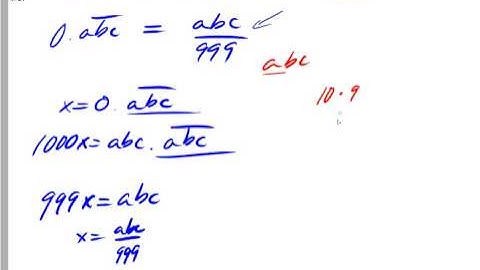 0.a\overline{bc} = abc/999
abc
x=0.\overline{abc}
10·9
1000x=abc.\overline{abc}
999x=abc
x=abc/999